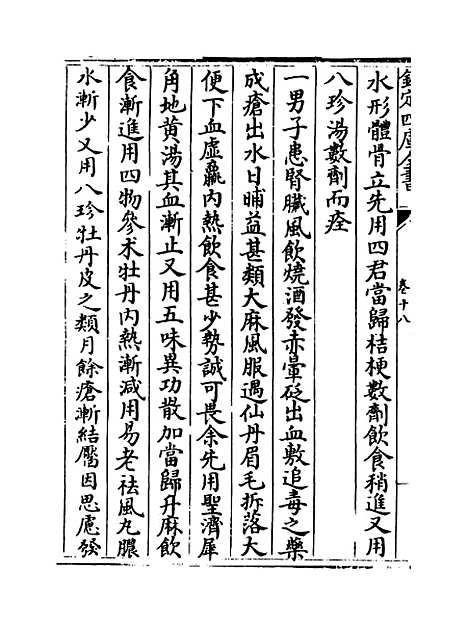 欽定四庫全書
卷十八
水形體骨立先用四君當歸桔梗數劑飲食稍進又用
八珍湯數劑而痊
一男子患腎臟風飲燒酒發赤暈砭出血敷追毒之藥
成瘡出水日晡益甚類大麻風服遇仙丹眉毛拆落大
便下血虛羸内熱飲食甚少勢誠可畏余先用聖濟犀
角地黄湯其血漸止又用五味異功散加當歸升麻飲
食漸進用四物參朮牡丹内熱漸減用易老祛風丸膿
水漸少又用八珍牡丹皮之類月餘瘡漸結靨因思慮發